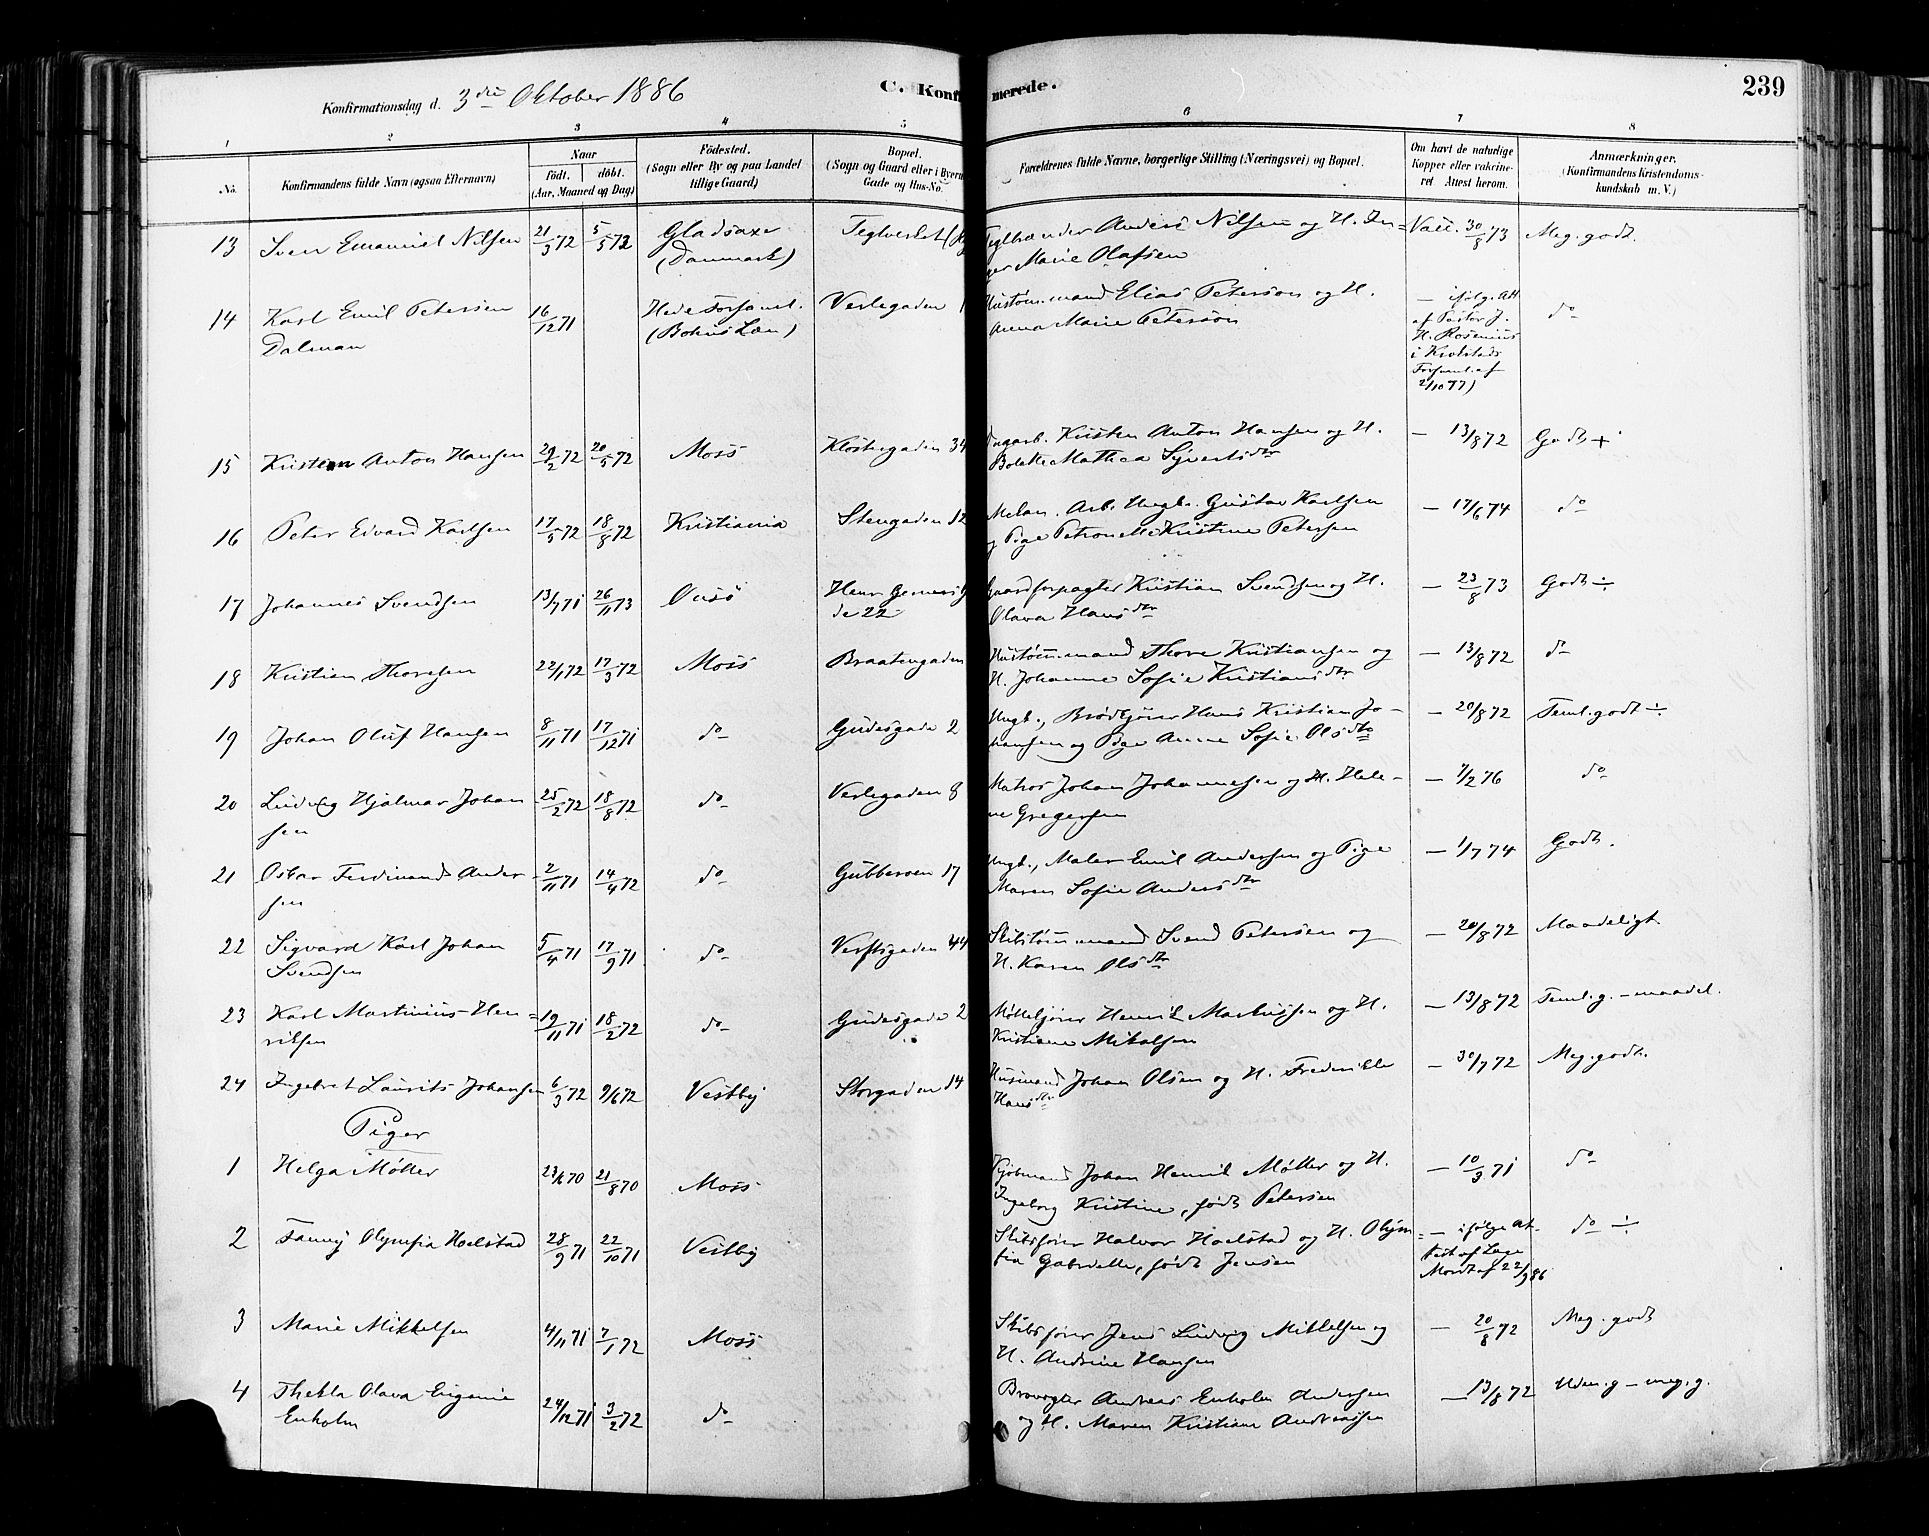 Konfirmationsdag d. 3die Oktober 1886
C. Konfirmerede.
239
1
2
3
4
5
6
7
8
No.
Konfirmandens fulde Navn (ogsaa Efternavn)
Naar
født. døbt.
(Aar, Maaned og Dag)
Fødested.
(Sogn eller By og paa Landet
tillige Gaard)
Bopæl.
(Sogn og Gaard eller i Byerne
Gade og Hus-No.
Forældrenes fulde Navne, borgerlige Stilling (Næringsvei) og Bopæl.
Om havt de naturlige
Kopper eller vakcine-
ret Attest herom.
Anmærkninger.
(Konfirmandens Kristendoms-
kundskab m. V.)
13 Sven Emanuel Nilsen 21/3 72 5/5 72 Gladsaxe Teglverket Anders Nilsen og H. In- Vacc. 30/8 73 Meg. godt.
(Danmark) ger Marie Olafsen
14 Karl Emil Petersen 16/12 71 Hede Forsaml. Verlegaden Hustømmand Elias Peterson og H. — ifølg. Att
Dalman (Bohus Len) Anna Marie Peterson af Pastor J. do
H. Rosenius
i Krokstads
Forsaml. af
2/10 77)
15 Kristian Anton Hansen 29/2 72 20/5 72 Moss Klostergaden 34 Dagarb. Kristen Anton Hansen og H. — 13/8 72 Godt +
Bolette Mathea Syvertsdtr
16 Peter Edvard Karlsen 17/5 72 18/8 72 Kristiania Stengaden 12 Mekan. Arb. Ungk. Gustav Karlsen — 17/6 74 do
og Pige Petronelle Kristine Petersen
17 Johannes Svendsen 13/7 71 26/11 73 Onsø Henr. Gerners Ga Gaardforpagter Kristian Svendsen og H. — 23/8 73 Godt ÷
de 22 Olava Hansdtr
18 Kristian Thoresen 22/1 72 17/3 72 Moss Braatengaden Hustømmand Thore Kristiansen og — 13/8 72 do
H. Johanne Sofie Kristiansdtr
19 Johan Oluf Hansen 8/11 71 17/12 71 do Gudesgade 2 Ungk., Brødkjører Hans Kristian Jo- — 20/8 72 Teml. godt ÷
hansen og Pige Anne Sofie Olsdtr
20 Ludvig Hjalmar Johan 25/2 72 18/8 72 do Verlegaden 8 Matros Johan Johannesen og H. Hele- — 7/2 76 do
sen ne Gregersen
21 Oskar Ferdinand Ander 2/11 71 14/4 72 do Gubberoen 17 Ungk., Maler Emil Andersen og Pige — 1/7 74 Godt.
sen Maren Sofie Andersdtr
22 Sigvard Karl Johan 5/4 71 17/9 71 do Verftsgaden 44 Skibstømmand Svend Petersen og — 20/8 72 Maadeligt
Svendsen H. Karen Olsdtr
23 Karl Martinius Hen- 19/11 71 18/2 72 do Gudesgade 2 Møllekjører Henrik Markussen og H. — 13/8 72 Teml. g. - maadel.
riksen Kristiane Mikalsen
24 Ingebret Laurits Johansen 6/3 72 9/6 72 Vestby Storgaden 14 Husmand Johan Olsen og H. Frederikke — 30/7 72 Meg. godt.
Hansdtr
Piger
1 Helga Møller 23/6 70 21/8 70 Moss Kjøbmand Johan Henrik Møller og H. — 10/3 71 do
Ingeborg Kristine, født Petersen
2 Fanny Olymfia Hoelstad 28/9 71 22/10 71 Vestby Skibsfører Halvor Hoelstad og H. Olym — ifølge At- do ÷
fia Gabrielle, født Jensen test af Læge
Mordt af 22/9 86
3 Marie Mikkelsen 4/11 71 7/1 72 Moss Skibsfører Jens Ludvig Mikkelsen og — 20/8 72 Meg. godt
H. Andrine Hansen
4 Thekla Olava Eugenie 24/12 71 3/2 72 do Brovogter Andreas Enholm Andersen — 13/8 72 Udm. g - meg. g.
Enholm og H. Maren Kristiane Andreassen